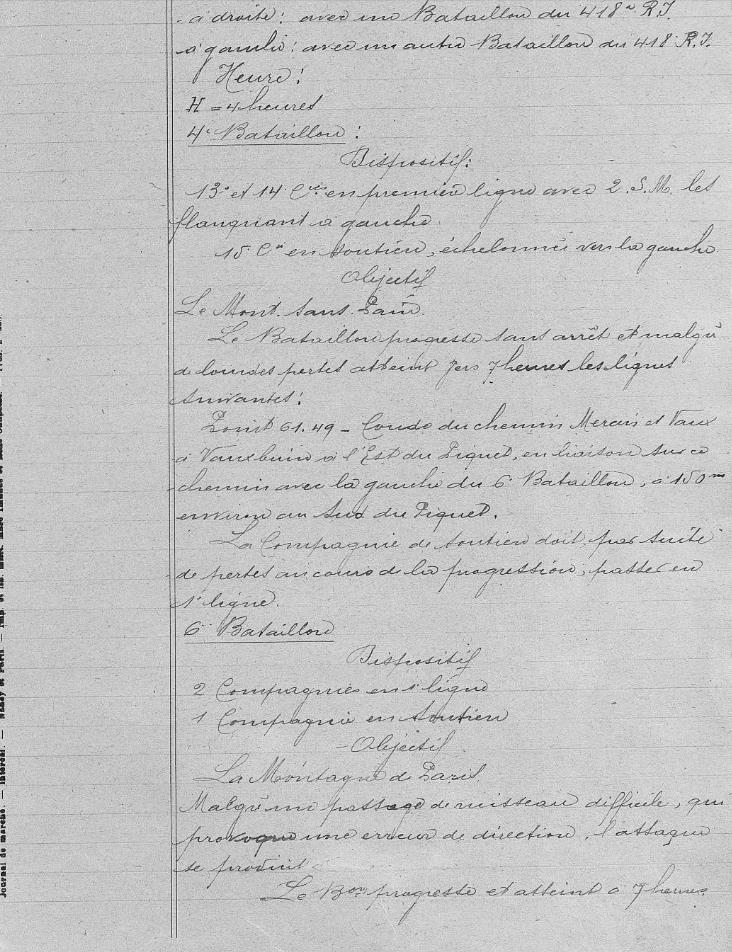 à droite : avec un Bataillon du 418e R.I.
à gauche : avec un autre Bataillon du 418e R.I.
Heure :
H = 4 heures
4e Bataillon :
Dispositif :
13e et 14e Cies en première ligne avec 2 S.M. les
flanquant à gauche.
15e Cie en soutien, échelonnée vers la gauche
Objectif
Le Mont sans Pain.
Le Bataillon progresse sans arrêt et malgré
de lourdes pertes atteint vers 7 heures les lignes
suivantes :
Point 61.49 – Coude du chemin Mercin et Vaux
à Vauxbuin à l'Est du Piquet, en liaison sur ce
chemin avec la gauche du 6e Bataillon, à 150m
environ au Sud du Piquet.
La Compagnie de soutien doit, par suite
de pertes au cours de la progression, passer en
1e ligne.
6e Bataillon
Dispositif
2 Compagnies en 1e ligne
1 Compagnie en soutien
Objectif
La Montagne de Paris.
Malgré un passage de ruisseau difficile, qui
provoque une erreur de direction, l'attaque
se produit.
Le Bon progresse et atteint à 7 heures
Journal de marche. — Intérieur. — Nancy et Paris. —